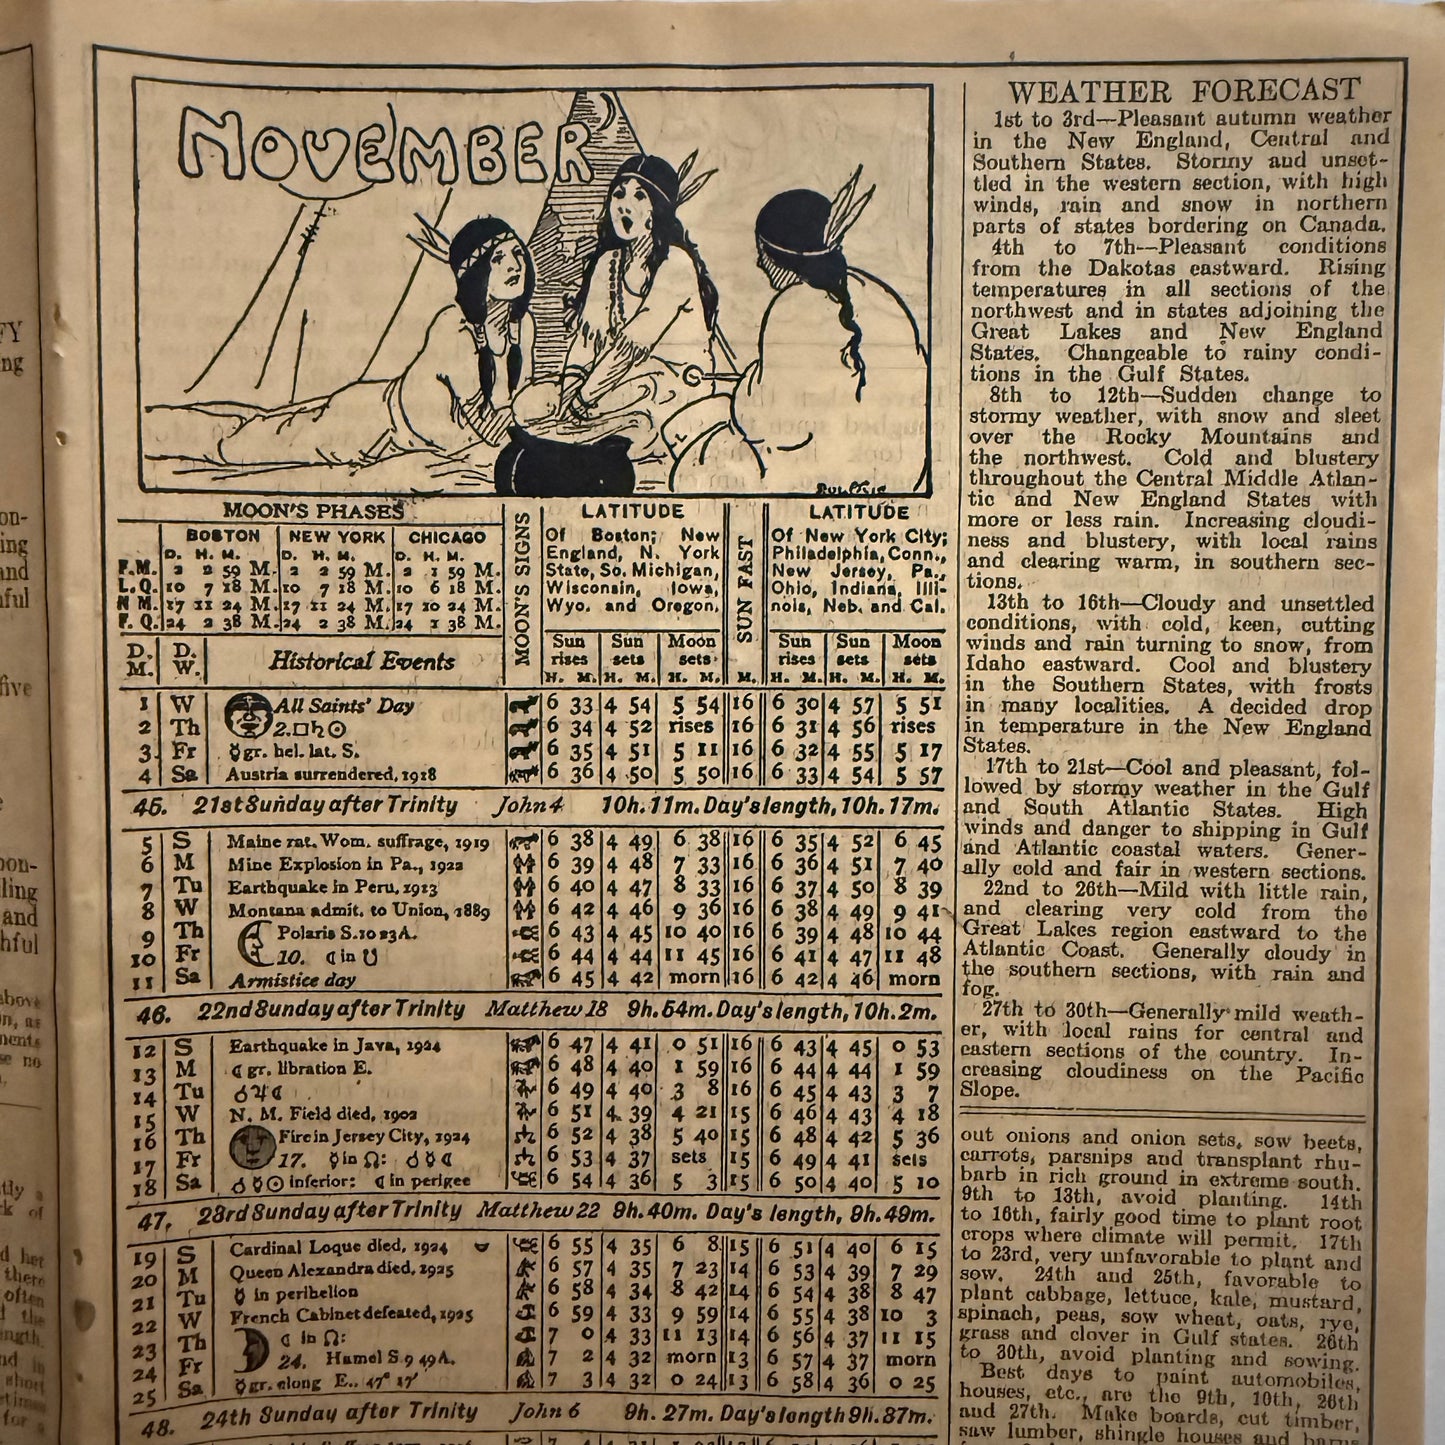 NOVEMBER
MOON'S PHASES
BOSTON NEW YORK CHICAGO
D. H. M. D. H. M. D. H. M.
F.M. 2 2 59 M. 2 2 59 M. 2 1 59 M.
L.Q. 10 7 18 M. 10 7 18 M. 10 6 18 M.
N M. 17 11 24 M. 17 11 24 M. 17 10 24 M.
F. Q. 24 2 38 M. 24 2 38 M. 24 1 38 M.
MOON'S SIGNS
LATITUDE
Of Boston; New
England, N. York
State, So. Michigan,
Wisconsin, Iowa,
Wyo. and Oregon.
SUN FAST
LATITUDE
Of New York City;
Philadelphia, Conn.,
New Jersey, Pa.,
Ohio, Indiana, Illi-
nois, Neb. and Cal.
D. M. D. W. Historical Events
Sun rises Sun sets Moon sets Sun rises Sun sets Moon sets
H. M. H. M. H. M. M. H. M. H. M. H. M.
1 W All Saints' Day 6 33 4 54 5 54 16 6 30 4 57 5 51
2 Th 2. □♄☉ 6 34 4 52 rises 16 6 31 4 56 rises
3 Fr ☿ gr. hel. lat. S. 6 35 4 51 5 11 16 6 32 4 55 5 17
4 Sa Austria surrendered, 1918 6 36 4 50 5 50 16 6 33 4 54 5 57
45. 21st Sunday after Trinity John 4 10h. 11m. Day's length, 10h. 17m.
5 S Maine rat. Wom. suffrage, 1919 6 38 4 49 6 38 16 6 35 4 52 6 45
6 M Mine Explosion in Pa., 1922 6 39 4 48 7 33 16 6 36 4 51 7 40
7 Tu Earthquake in Peru, 1913 6 40 4 47 8 33 16 6 37 4 50 8 39
8 W Montana admit. to Union, 1889 6 42 4 46 9 36 16 6 38 4 49 9 41
9 Th Polaris S. 10 23 A. 6 43 4 45 10 40 16 6 39 4 48 10 44
10 Fr 10. ☾ in ☋ 6 44 4 44 11 45 16 6 41 4 47 11 48
11 Sa Armistice day 6 45 4 42 morn 16 6 42 4 46 morn
46. 22nd Sunday after Trinity Matthew 18 9h. 54m. Day's length, 10h. 2m.
12 S Earthquake in Java, 1924 6 47 4 41 0 51 16 6 43 4 45 0 53
13 M ☾ gr. libration E. 6 48 4 40 1 59 16 6 44 4 44 1 59
14 Tu ☌♃☾ 6 49 4 40 3 8 16 6 45 4 43 3 7
15 W N. M. Field died, 1902 6 51 4 39 4 21 15 6 46 4 43 4 18
16 Th Fire in Jersey City, 1924 6 52 4 38 5 40 15 6 48 4 42 5 36
17 Fr 17. ☿ in ☊: ☌☿☾ 6 53 4 37 sets 15 6 49 4 41 sets
18 Sa ☌☿☉ inferior: ☾ in perigee 6 54 4 36 5 3 15 6 50 4 40 5 10
47. 23rd Sunday after Trinity Matthew 22 9h. 40m. Day's length, 9h. 49m.
19 S Cardinal Loque died, 1924 6 55 4 35 6 8 15 6 51 4 40 6 15
20 M Queen Alexandra died, 1925 6 57 4 35 7 23 14 6 53 4 39 7 29
21 Tu ☿ in perihelion 6 58 4 34 8 42 14 6 54 4 38 8 47
22 W French Cabinet defeated, 1925 6 59 4 33 9 59 14 6 55 4 38 10 3
23 Th ☾ in ☊: 7 0 4 33 11 13 14 6 56 4 37 11 15
24 Fr 24. Hamel S. 9 49 A. 7 2 4 32 morn 13 6 57 4 37 morn
25 Sa ☿ gr. elong E.. 47° 17' 7 3 4 32 0 24 13 6 58 4 36 0 25
48. 24th Sunday after Trinity John 6 9h. 27m. Day's length 9h. 37m.
WEATHER FORECAST
1st to 3rd—Pleasant autumn weather
in the New England, Central and
Southern States. Stormy and unset-
tled in the western section, with high
winds, rain and snow in northern
parts of states bordering on Canada.
4th to 7th—Pleasant conditions
from the Dakotas eastward. Rising
temperatures in all sections of the
northwest and in states adjoining the
Great Lakes and New England
States. Changeable to rainy condi-
tions in the Gulf States.
8th to 12th—Sudden change to
stormy weather, with snow and sleet
over the Rocky Mountains and
the northwest. Cold and blustery
throughout the Central Middle Atlan-
tic and New England States with
more or less rain. Increasing cloudi-
ness and blustery, with local rains
and clearing warm, in southern sec-
tions.
13th to 16th—Cloudy and unsettled
conditions, with cold, keen, cutting
winds and rain turning to snow, from
Idaho eastward. Cool and blustery
in the Southern States, with frosts
in many localities. A decided drop
in temperature in the New England
States.
17th to 21st—Cool and pleasant, fol-
lowed by stormy weather in the Gulf
and South Atlantic States. High
winds and danger to shipping in Gulf
and Atlantic coastal waters. Gener-
ally cold and fair in western sections.
22nd to 26th—Mild with little rain,
and clearing very cold from the
Great Lakes region eastward to the
Atlantic Coast. Generally cloudy in
the southern sections, with rain and
fog.
27th to 30th—Generally mild weath-
er, with local rains for central and
eastern sections of the country. In-
creasing cloudiness on the Pacific
Slope.
out onions and onion sets, sow beets,
carrots, parsnips and transplant rhu-
barb in rich ground in extreme south.
9th to 13th, avoid planting. 14th
to 16th, fairly good time to plant root
crops where climate will permit. 17th
to 23rd, very unfavorable to plant and
sow. 24th and 25th, favorable to
plant cabbage, lettuce, kale, mustard,
spinach, peas, sow wheat, oats, rye,
grass and clover in Gulf states. 26th
to 30th, avoid planting and sowing.
Best days to paint automobiles,
houses, etc., are the 9th, 10th, 26th
and 27th. Make boards, cut timber,
saw lumber, shingle houses and barns